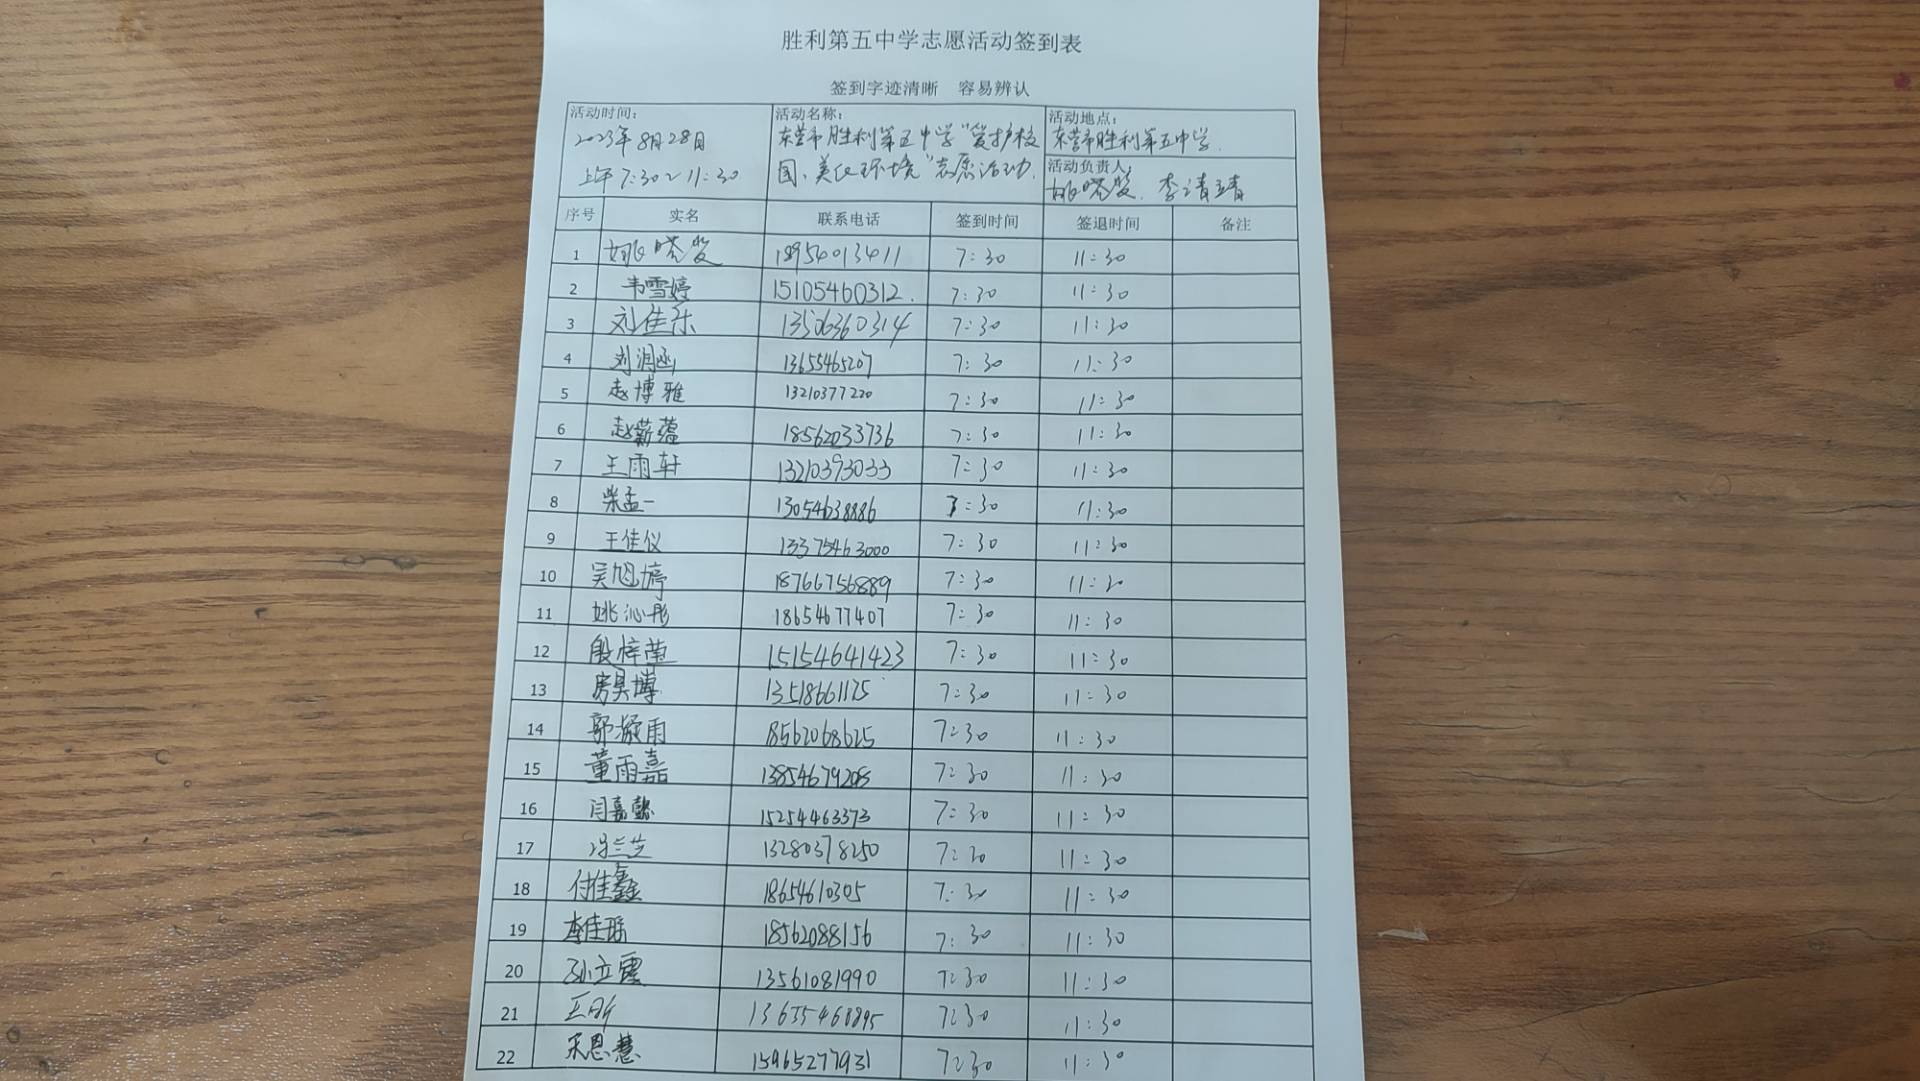 胜利第五中学志愿活动签到表
签到字迹清晰 容易辨认
活动时间：
2023年8月28日
上午7:30~11:30
活动名称：
东营市胜利第五中学"爱护校
园、美化环境"志愿活动.
活动地点：
东营市胜利第五中学.
活动负责人：
姚 李
序号 实名 联系电话 签到时间 签退时间 备注
1 姚 18954013411 7:30 11:30
2 韦雪婷 15105460312. 7:30 11:30
3 刘佳乐 13506360314 7:30 11:30
4 刘润函 13655465207 7:30 11:30
5 赵博雅 13210377220 7:30 11:30
6 赵薪蕴 18562033736 7:30 11:30
7 王雨轩 13210393033 7:30 11:30
8 柴孟一 13054638886 7:30 11:30
9 王佳仪 13375463000 7:30 11:30
10 吴旭婷 18766756889 7:30 11:30
11 姚沁彤 18654677407 7:30 11:30
12 殷梓莹 15154641423 7:30 11:30
13 房昊博 13518661125 7:30 11:30
14 郭凝雨 18562068625 7:30 11:30
15 董雨嘉 13854679208 7:30 11:30
16 闫嘉懿 15254463373 7:30 11:30
17 冯兰芝 13280378250 7:30 11:30
18 付佳鑫 18654610305 7:30 11:30
19 李佳瑶 18562088156 7:30 11:30
20 孙立霞 13561081990 7:30 11:30
21 王昕 13655468895 7:30 11:30
22 宋恩慧 15965277931 7:30 11:30